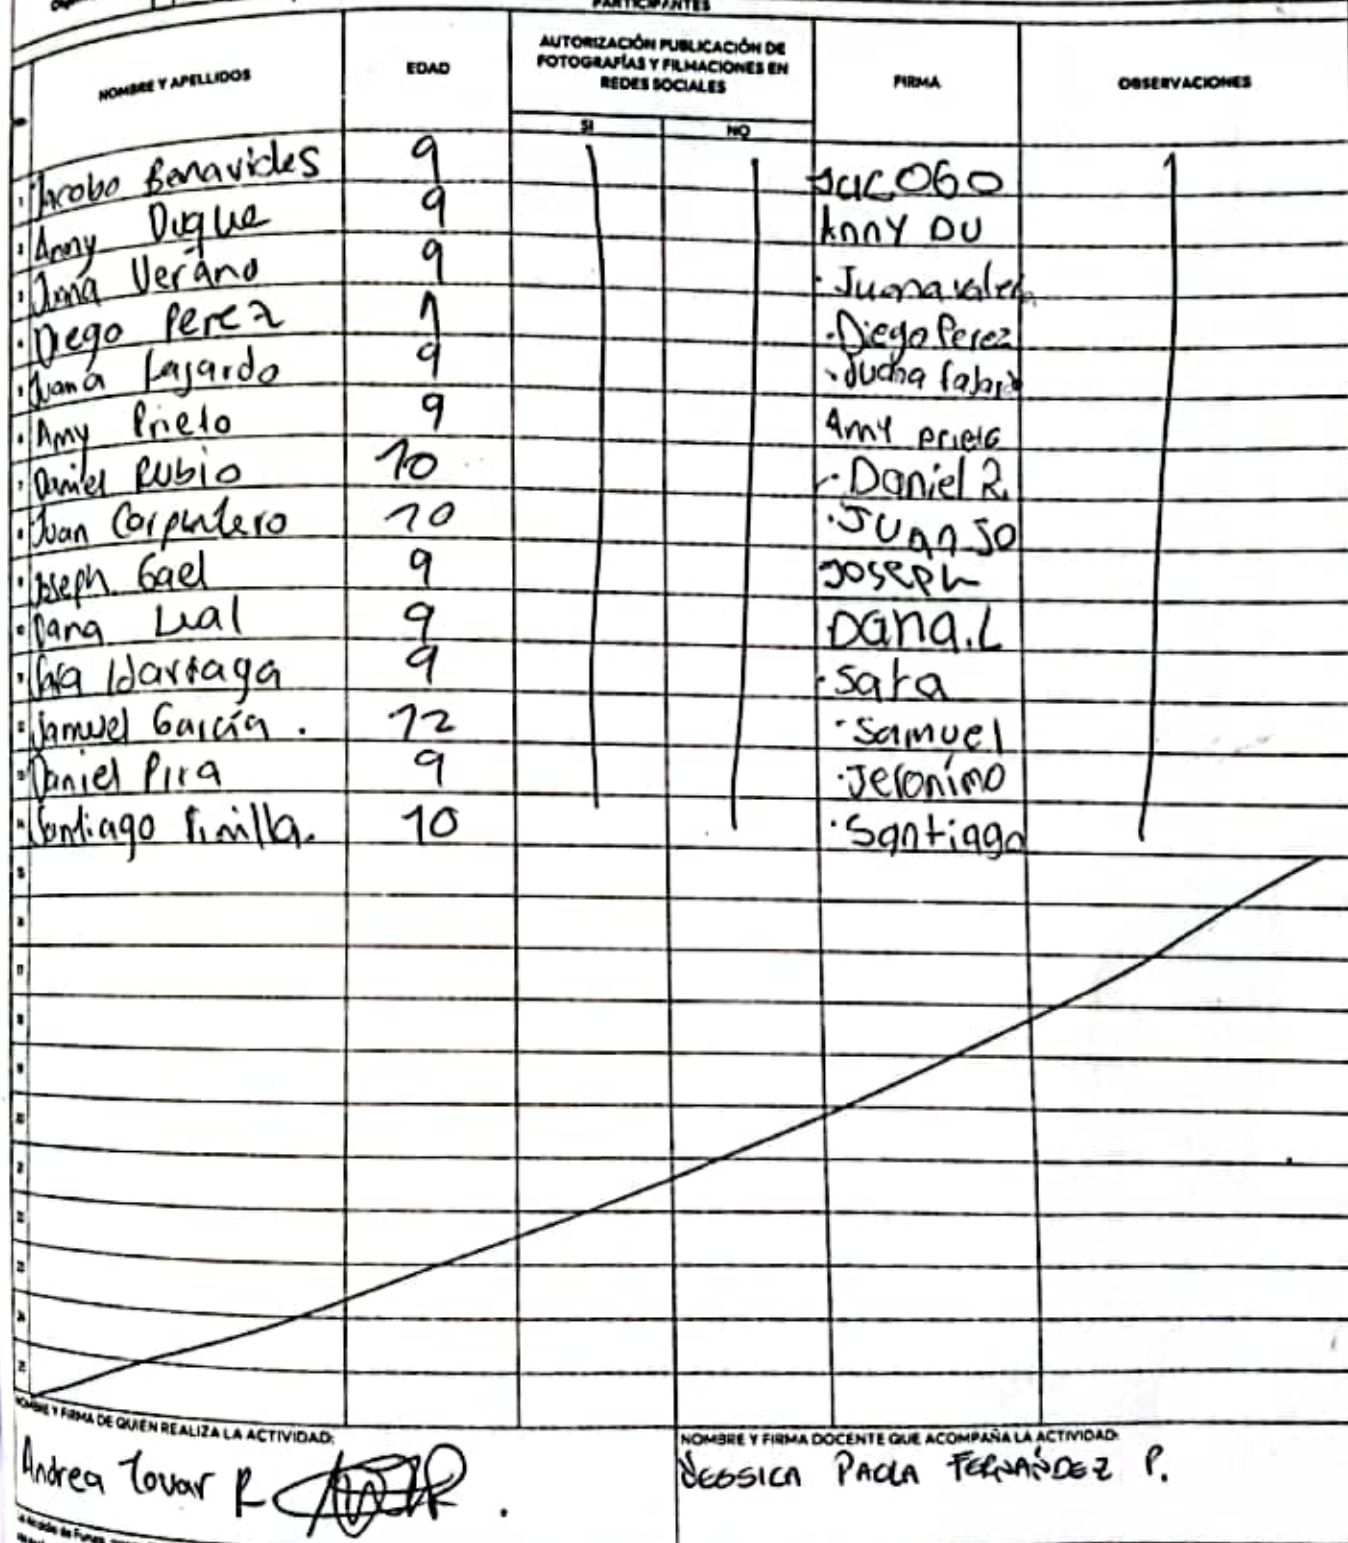 PARTICIPANTES
NOMBRE Y APELLIDOS EDAD AUTORIZACIÓN PUBLICACIÓN DE FOTOGRAFÍAS Y FILMACIONES EN REDES SOCIALES FIRMA OBSERVACIONES
SI NO
1 Jacobo Benavides 9 Jacobo
2 Anny Duque 9 Anny DU
3 Juana Verano 9 Juana
4 Diego Perez 9 Diego Perez
5 Juana Fajardo 9 Fajardo
6 Amy Prieto 9 Amy Prieto
7 Daniel Rubio 10 Daniel R.
8 Juan Carpintero 10 JUANJO
9 Joseph Gael 9 Joseph
10 Dana Leal 9 Dana.L
11 Sara Idarraga 9 Sara
12 Samuel García. 12 Samuel
13 Daniel 9 Jeronimo
14 Santiago Pinilla. 10 Santiago
15
16
17
18
19
20
21
22
23
24
25
NOMBRE Y FIRMA DE QUIEN REALIZA LA ACTIVIDAD:
Andrea Tovar R
NOMBRE Y FIRMA DOCENTE QUE ACOMPAÑA LA ACTIVIDAD:
JESSICA PAOLA FERNÁNDEZ P.